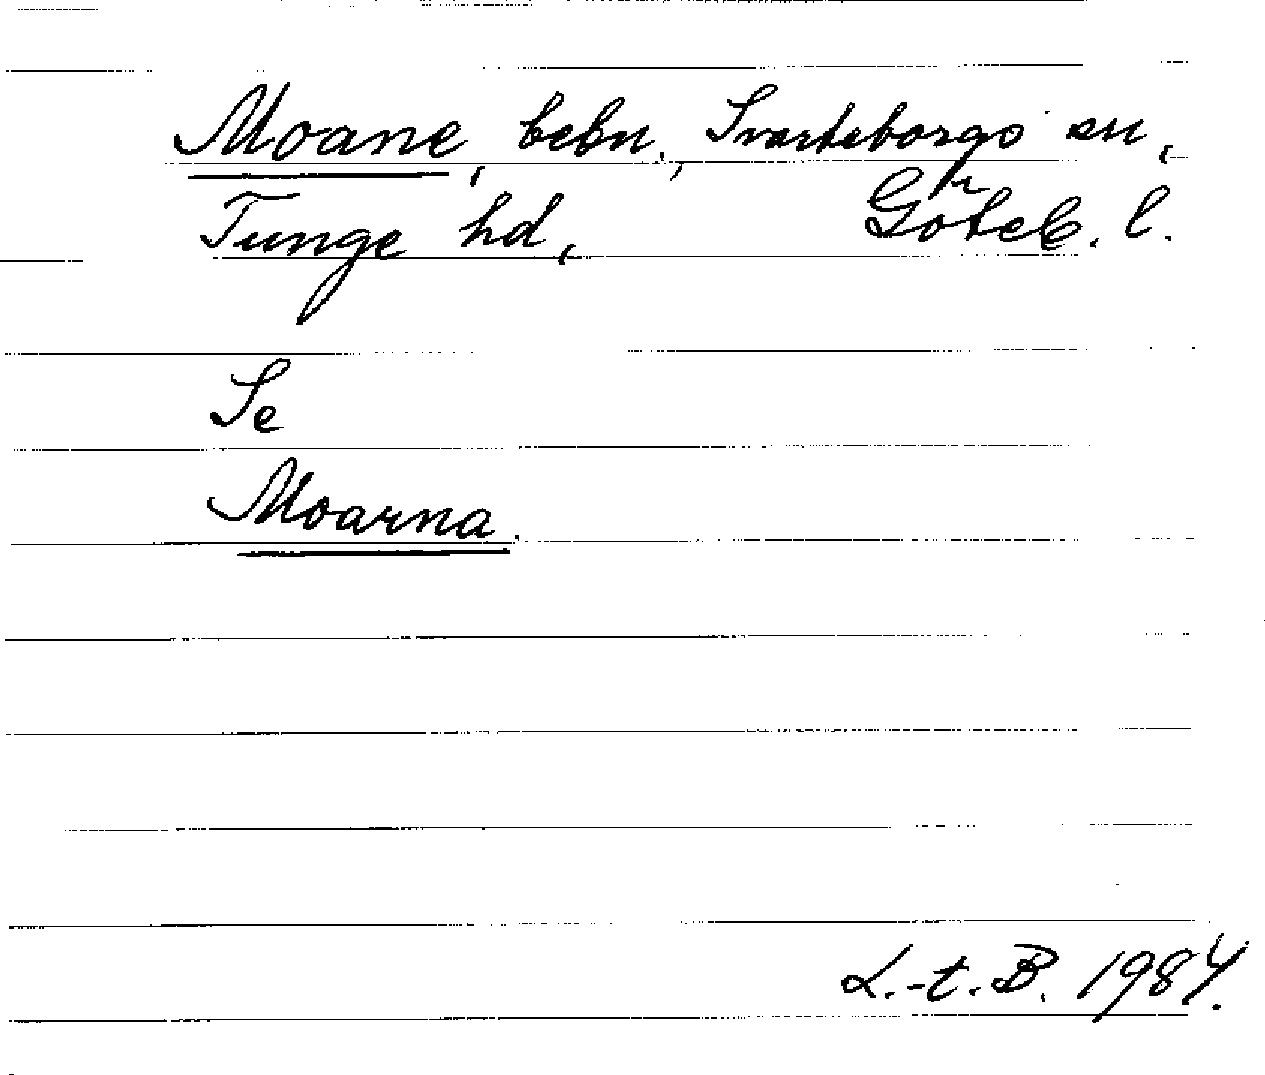 Moane, bebn., Svarteborgs sn,
Tunge hd, Göteb. l.
Se
Moarna.
L.-t. B. 1984.